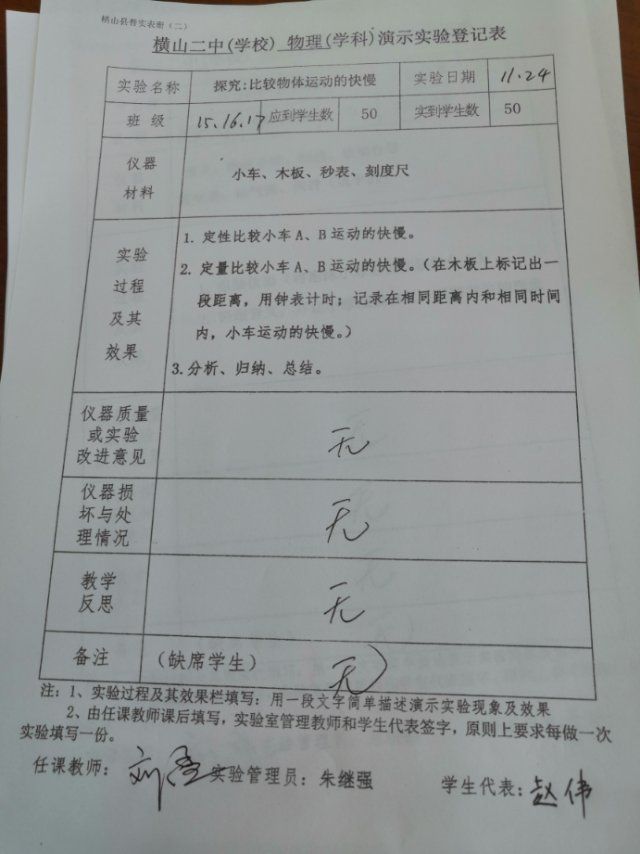 横山县普实表册(二)
横山二中(学校) 物理(学科)演示实验登记表
实验名称 探究:比较物体运动的快慢 实验日期 11.24
班 级 15.16.17 应到学生数 50 实到学生数 50
仪器
材料
小车、木板、秒表、刻度尺
实验
过程
及其
效果
1. 定性比较小车A、B运动的快慢。
2. 定量比较小车A、B运动的快慢。(在木板上标记出一
段距离,用钟表计时;记录在相同距离内和相同时间
内,小车运动的快慢。)
3.分析、归纳、总结。
仪器质量
或实验
改进意见
无
仪器损
坏与处
理情况
无
教学
反思
无
备注 (缺席学生) 无
注:1、实验过程及其效果栏填写:用一段文字简单描述演示实验现象及效果
2、由任课教师课后填写,实验室管理教师和学生代表签字,原则上要求每做一次
实验填写一份。
任课教师: 刘 实验管理员:朱继强 学生代表:赵伟